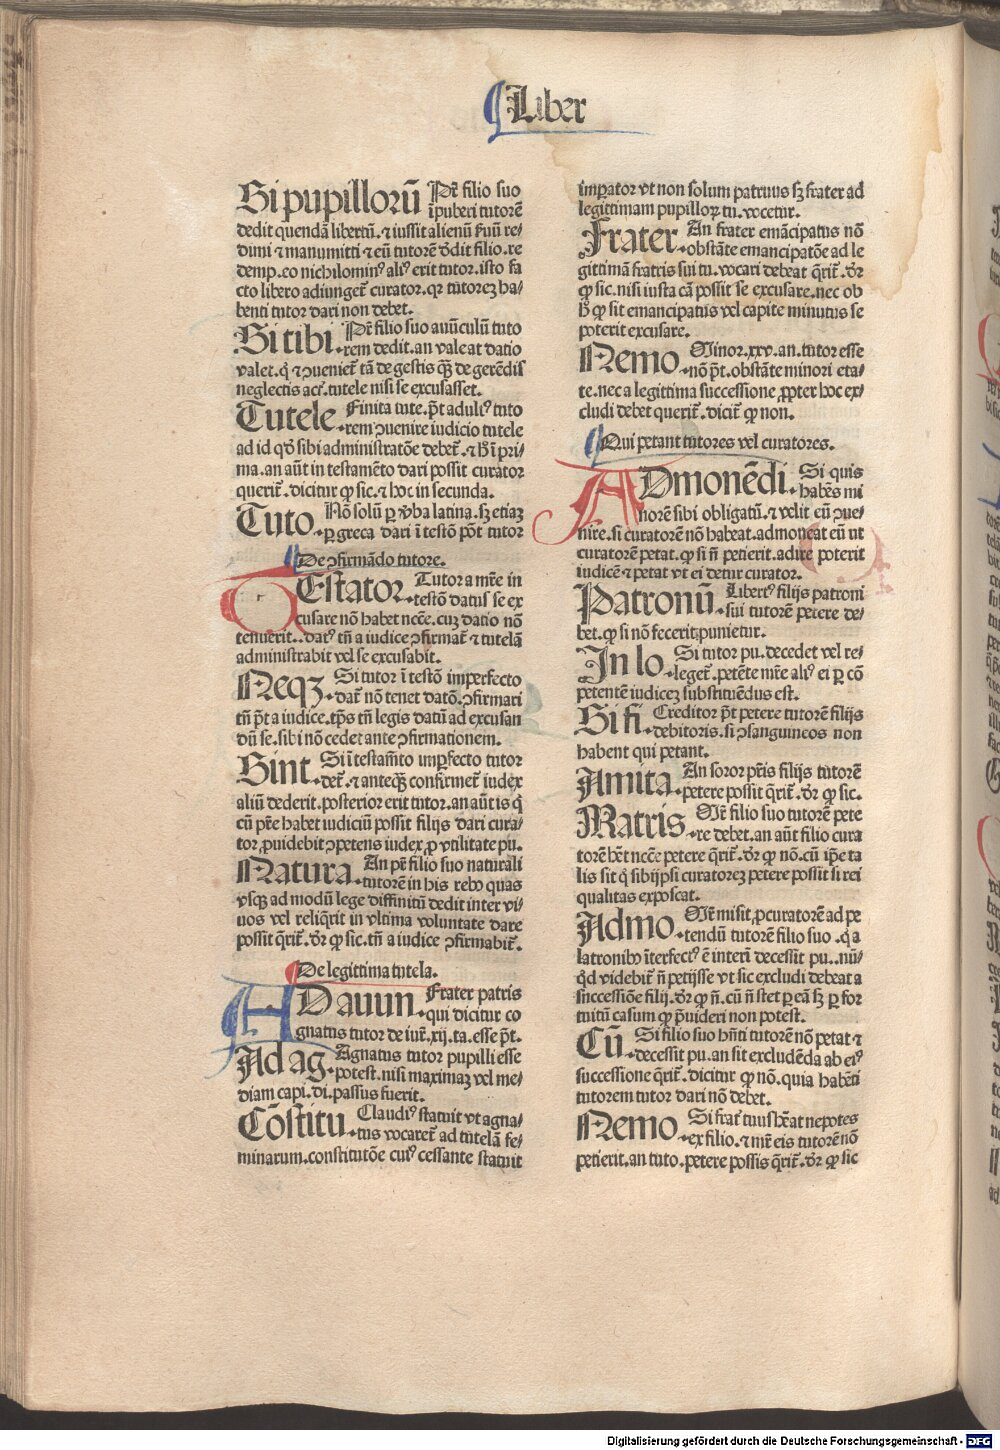 Liber
Si pupillorū Pr̄ filio suo
ipuberi tutorē
dedit quendā libertū. ⁊ iussit alienū ẜuū re/
dimi ⁊ manumitti ⁊ eū tutorē d̄dit filio. re
demp. eo nichilominꝰ aliꝰ erit tutor. isto fa
cto libero adiunget̄ curator. qr tutoreꝫ ha/
benti tutor dari non debet.
Si tibi. Pr̄ filio suo auūculū tuto
rem dedit. an valeat datio
valet. q̇ ⁊ ꝯueniet̄ tā de gestis qꝫ̄ de gerēdis
neglectis act̄. tutele nisi se excusasset.
Tutele. Finita tute. pt̄ adulꝰ tuto
rem ꝯuenire iudicio tutele
ad id qd̄ sibi administratōe debet̄. ⁊ h̄ ī pri/
ma. an aūt in testamēto dari possit curator
querit̄. dicitur ꝙ sic. ⁊ hoc in secunda.
Tuto. Nō solū ꝑ v̄ba latina. sꝫ etiaꝫ
ꝑ greca dari ī testō pōt tutor
De ꝯfirmādo tutore.
TEstator. Tutor a mr̄e in
testō datus se ex
cusare nō habet ncc̄e. cuꝫ datio nō
tenuerit. datꝰ tn̄ a iudice ꝯfirmat̄ ⁊ tutelā
administrabit vel se excusabit.
Neqꝫ. Si tutor ī testō imperfecto
dat̄ nō tenet datō. ꝯfirmari
tn̄ pt̄ a iudice. tp̄s tn̄ legis datū ad excusan
dū se. sibi nō cedet ante ꝯfirmationem.
Sint. Si ī testam̄to imꝑfecto tutor
det̄. ⁊ anteqꝫ̄ confirmet̄ iudex
aliū dederit. posterior erit tutor. an aūt is q̇
cū pr̄e habet iudiciū possit filijs dari cura/
tor, ꝓuidebit ꝯpetens iudex, ꝓ vtilitate pu.
Natura. An pr̄ filio suo naturali
tutorē in his rebꝰ quas
vsqꝫ ad modū lege diffinitū dedit inter vi/
uos vel reliq̄rit in vltima voluntate dare
possit q̄rit̄. dr̄ ꝙ sic. tn̄ a iudice ꝯfirmabit̄.
De legittima tutela.
ADauun. Frater patris
qui dicitur co
gnatus tutor de iur̄. xij. ta. esse pt̄.
Ad ag. Agnatus tutor pupilli esse
potest. nisi maximaꝫ vel me/
diam capi. di. passus fuerit.
Cōstitu. Claudiꝰ statuit vt agna/
tus vocaret̄ ad tutelā fe/
minarum. constitutōe cuiꝰ cessante statuit
imꝑator vt non solum patruus sꝫ frater ad
legittimam pupilloꝝ tu. vocetur.
Frater. An frater emācipatus nō
obstāte emancipatōe ad le
gittimā fratris sui tu. vocari debeat q̄rit̄. dr̄
ꝙ sic. nisi iusta cā possit se excusare. nec ob
h̄ ꝙ sit emancipatus vel capite minutus se
poterit excusare.
Nemo. Minor. xxv. an. tutor esse
nō pt̄. obstāte minori eta/
te. nec a legittima successione, ꝓpter hoc ex/
cludi debet querit̄. dicit̄ ꝙ non.
Qui petant tutores vel curatores.
ADmonēdi. Si quis
habēs mi
norē sibi obligatū. ⁊ velit eū ꝯue/
nire. si curatorē nō habeat. admoneat eū vt
curatorē petat. ꝙ si n̄ petierit. adire poterit
iudicē ⁊ petat vt ei detur curator.
Patronū. Libertꝰ filijs patroni
sui tutorē petere de/
bet. ꝙ si nō fecerit punietur.
In lo. Si tutor pu. decedet vel re/
leget̄. petēte mr̄e aliꝰ ei ꝑ cō
petentē iudiceꝫ substituēdus est.
Si fi. Creditor pt̄ petere tutorē filijs
debitoris. si ꝯsanguineos non
habent qui petant.
Amita. An soror pr̄is filijs tutorē
petere possit q̄rit̄. dr̄ ꝙ sic.
Matris. Mr̄ filio suo tutorē pete
re debet. an aūt filio cura
torē hr̄et ncc̄e petere q̄rit̄. dr̄ ꝙ nō. cū ip̄e ta
lis sit q̇ sibijpsi curatoreꝫ petere possit si rei
qualitas exposcat.
Admo. Mr̄ misit, ꝓcuratorē ad pe
tendū tutorē filio suo. q̇ a
latronibꝰ īterfectꝰ ē interī decessit pu. nū/
qd̄ videbit̄ n̄ petijsse vt sic excludi debeat a
successiōe filij. dr̄ ꝙ n̄. cū n̄ stet ꝑ eā sꝫ ꝑ for
tuitū casum ꝙ p̄uideri non potest.
Cū. Si filio suo hn̄ti tutorē nō petat ⁊
decessit pu. an sit excludēda ab eiꝰ
successione q̄rit̄. dicitur ꝙ nō. quia habēti
tutorem tutor dari nō debet.
Nemo. Si frat̄ tuus hēat nepotes
ex filio. ⁊ mr̄ eis tutorē nō
petierit. an tuto. petere possis q̄rit̄. dr̄ ꝙ sic
Digitalisierung gefördert durch die Deutsche Forschungsgemeinschaft - DFG